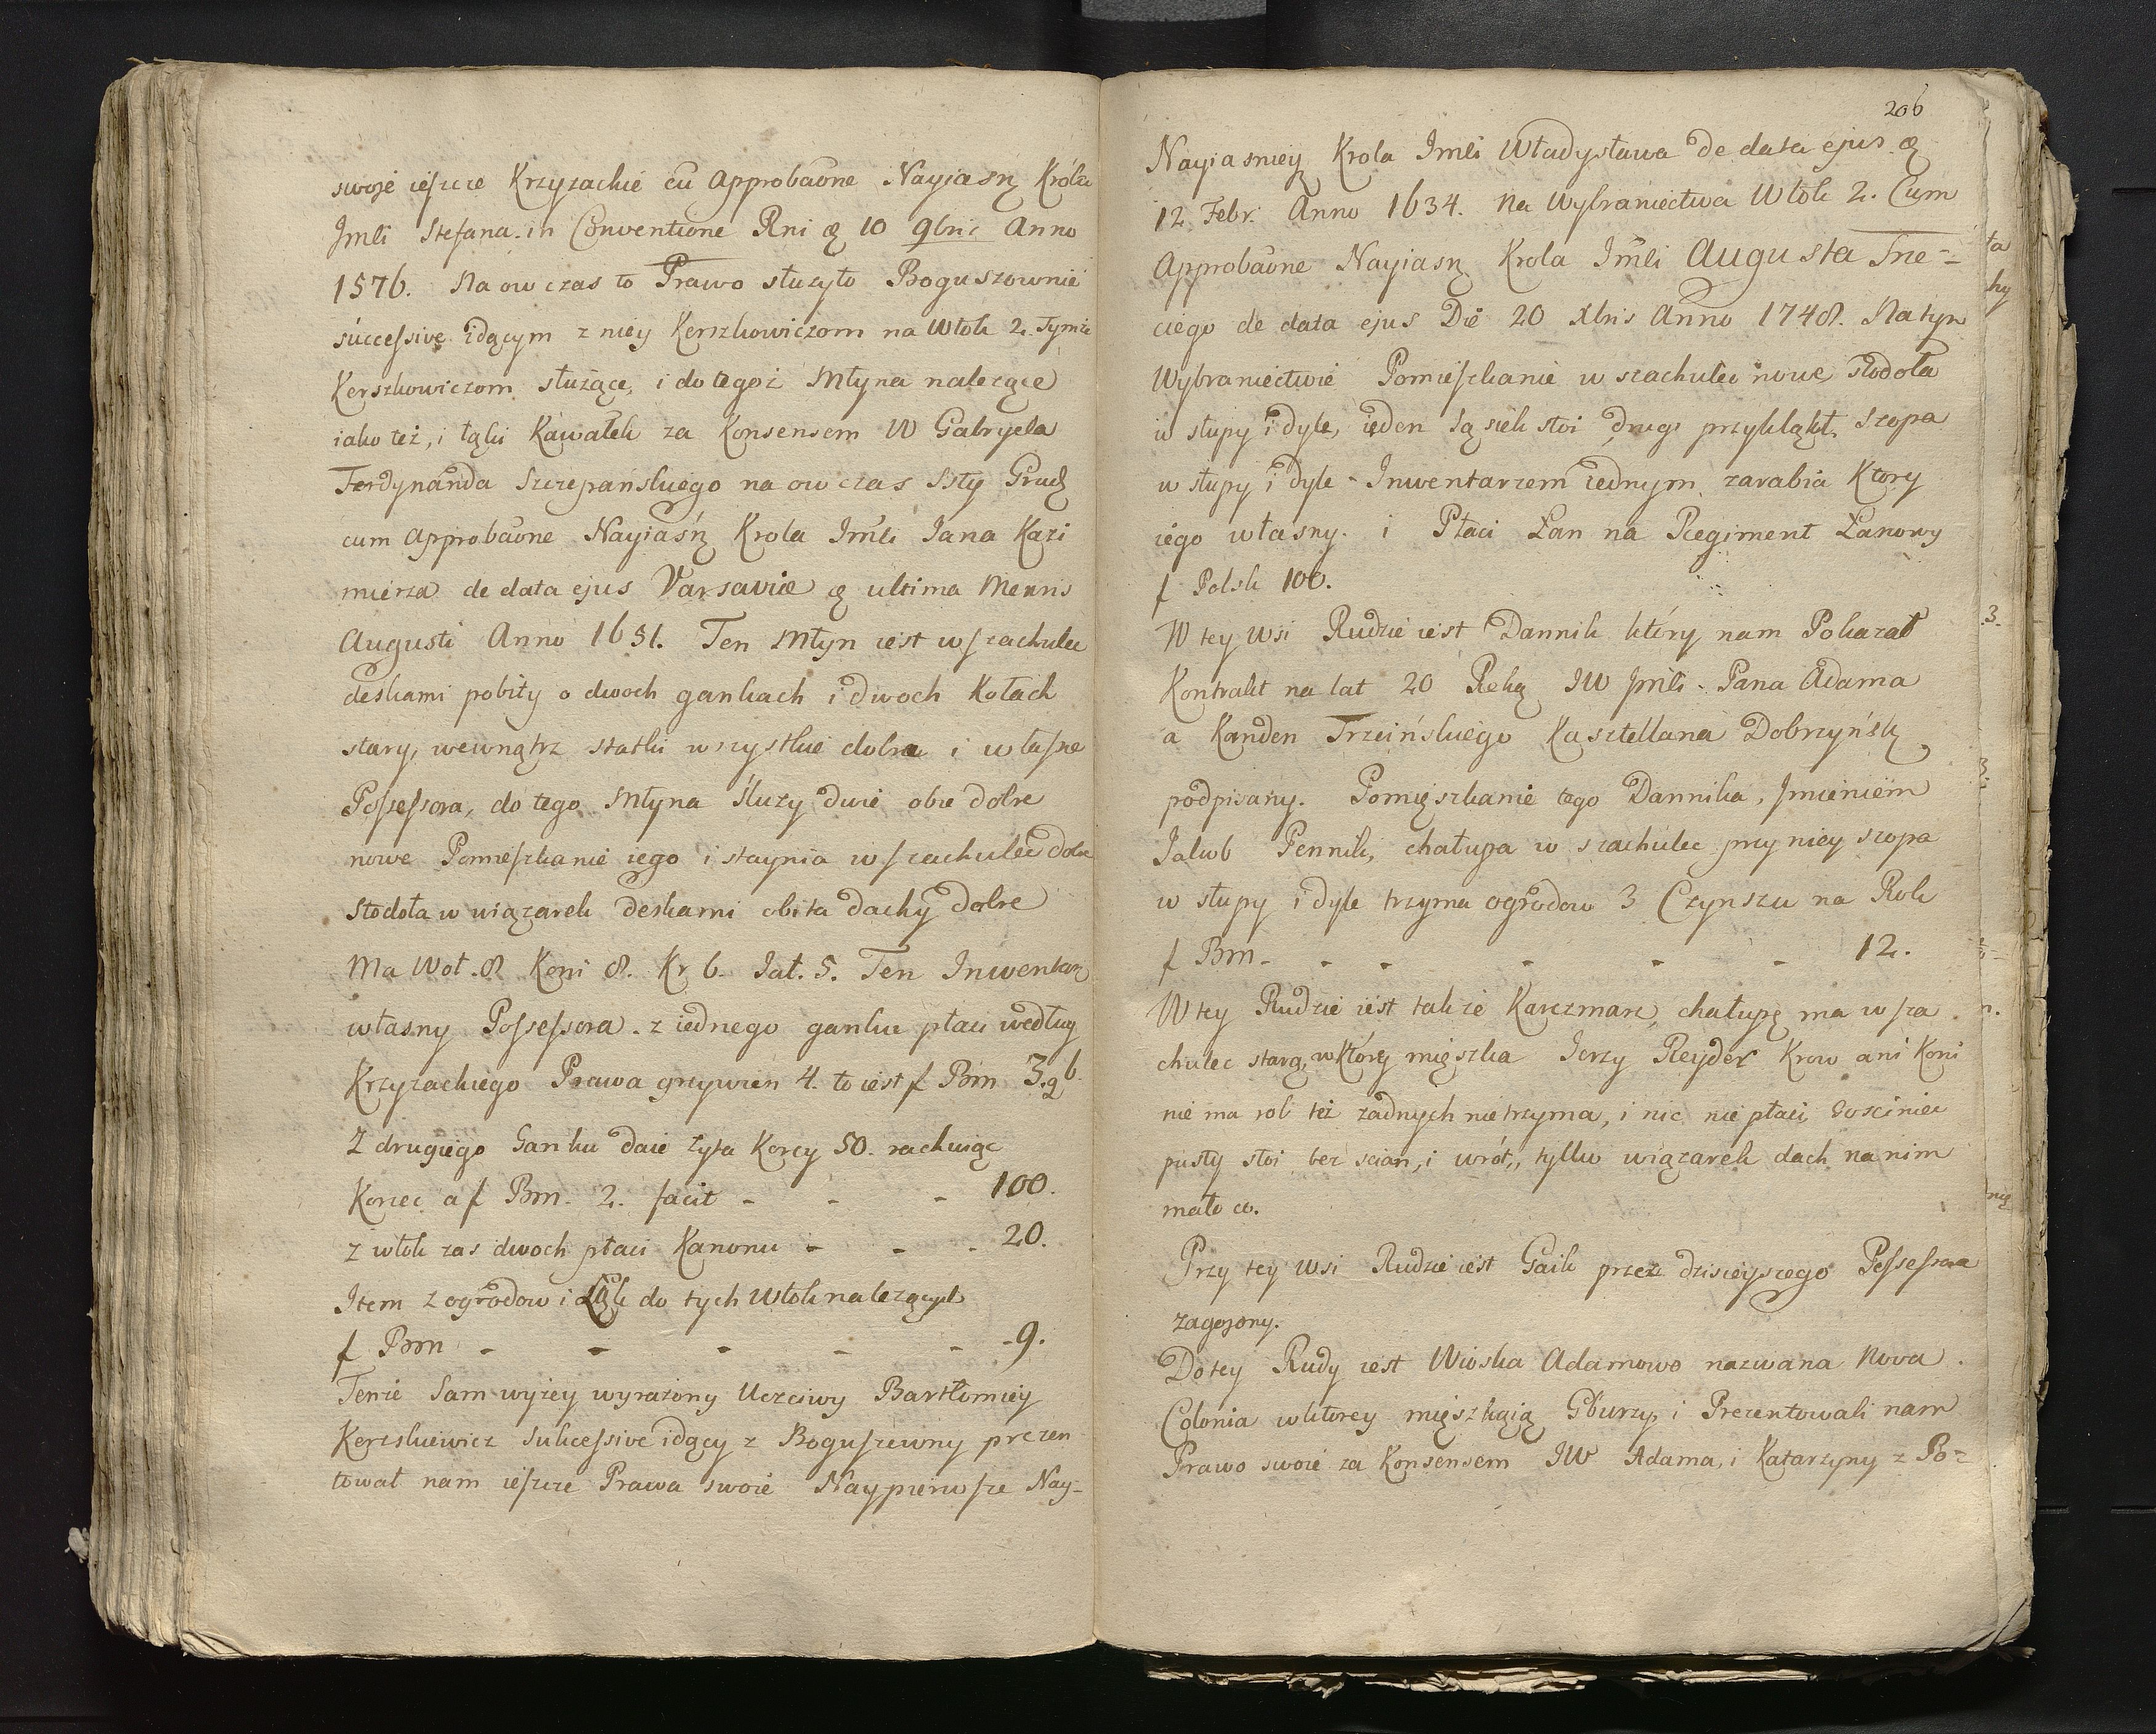 swoje ieszcze Krzyzackie cũ Approbaõne Nayiasn Króla
Jmći Stefana in Conventione Rni 10 9bris Anno
1576. Na ow czas to Prawo słuzyło Boguszownie
successive idącym z niey Kerszkowiczom na Włok 2. Tymże
Kerszkowiczom słuzące, i do tegoż Młyna nalezące
iako też, i łąki Kawałek za Konsensem W Gabryela
Ferdynanda Szczepańskiego na ow czas Ssty Grudz
cum Approbaõne Nayiaśn Krola Jmći Jana Kazi
mierza de data ejus Varsaviæ ultima Mensis
Augusti Anno 1651. Ten Młyn iest w szachulec
deskami pobity o dwoch gankach i dwoch Kołach
stary, wewnątrz statki wszystkie dobre i własne
Possessora, do tego Młyna Śluzy dwie obie dobre
nowe Pomieszkanie iego i staynia w szachulec dobre
Stodoła w wiązarek deskami obita dachy dobre
Ma Woł. 8 Koni 8. Kr. 6. Jał. 5. Ten Inwentarz
własny Possessora. z iednego ganku płaci według
Krzyzackiego Prawa grzywien 4. to iest f Prm 3. g 6.
Z drugiego Ganku daie żyta Korcy 50. rachuiąc
Korzec a f Prm. 2. facit - - - 100.
z włok zas dwoch płaci Kanonu - - - 20.
Item z ogrodow i Łąk do tych Włok nalezących
f Prm - - - - - 9.
Tenże Sam wyżey wyrażony Uczciwy Bartłomiey
Kerszkiewicz Sukcessive idący z Boguszewny prezen
tował nam ieszcze Prawa swoie Naypierwsze Nay-
206
Nayiasniey Krola Jmći Władysława de data ejus
12 Febr. Anno 1634. na Wybraniectwa Włók 2. Cum
Approbaõne Nayiasn Krola Jmći Augusta Trze-
ciego de data ejus Die 20 Xbris Anno 1748. Na tym
Wybraniectwie Pomieszkanie w szachulec nowe stodoła
w słupy i dyle, ieden Sąsiek stoi drugi przykląkł, Szopa
w słupy i dyle - Inwentarzem iednym zarabia Ktory
iego własny. i Płaci Łan na Regiment Łanowy
f Polsk 100.
W tey Wsi Rudzie iest Dannik który nam Pokazał
Kontrakt na lat 20 Ręką JW Jmći Pana Adama
a Kanden Trzcińskiego Kasztellana Dobrzyńsk
podpisany. Pomięszkanie tego Dannika, Jmieniem
Jakub Pennik, chałupa w szachulec przy niey szopa
w słupy i dyle trzyma ogrodow 3 Czynszu na Rok
f Prm - - - - - - 12.
W tey Rudzie iest takze Karczmarz, chałupę ma w sza
chulec starą, w ktorey mięszka Jerzy Reyder Krow ani Koni
nie ma rol też żadnych nie trzyma, i nic nie płaci Gosciniec
pusty stoi bez scian, i wrót, tylko wiązarek dach na nim
mało co.
Przy tey Wsi Rudzie iest Gaik przez dzisieyszego Possessora
zagojony.
Do tey Rudy iest Wioska Adamowo nazwana Nova
Colonia w ktorey mięszkaią Gburzy, i Prezentowali nam
Prawo swoie za Konsensem JW Adama, i Katarzyny z Po-